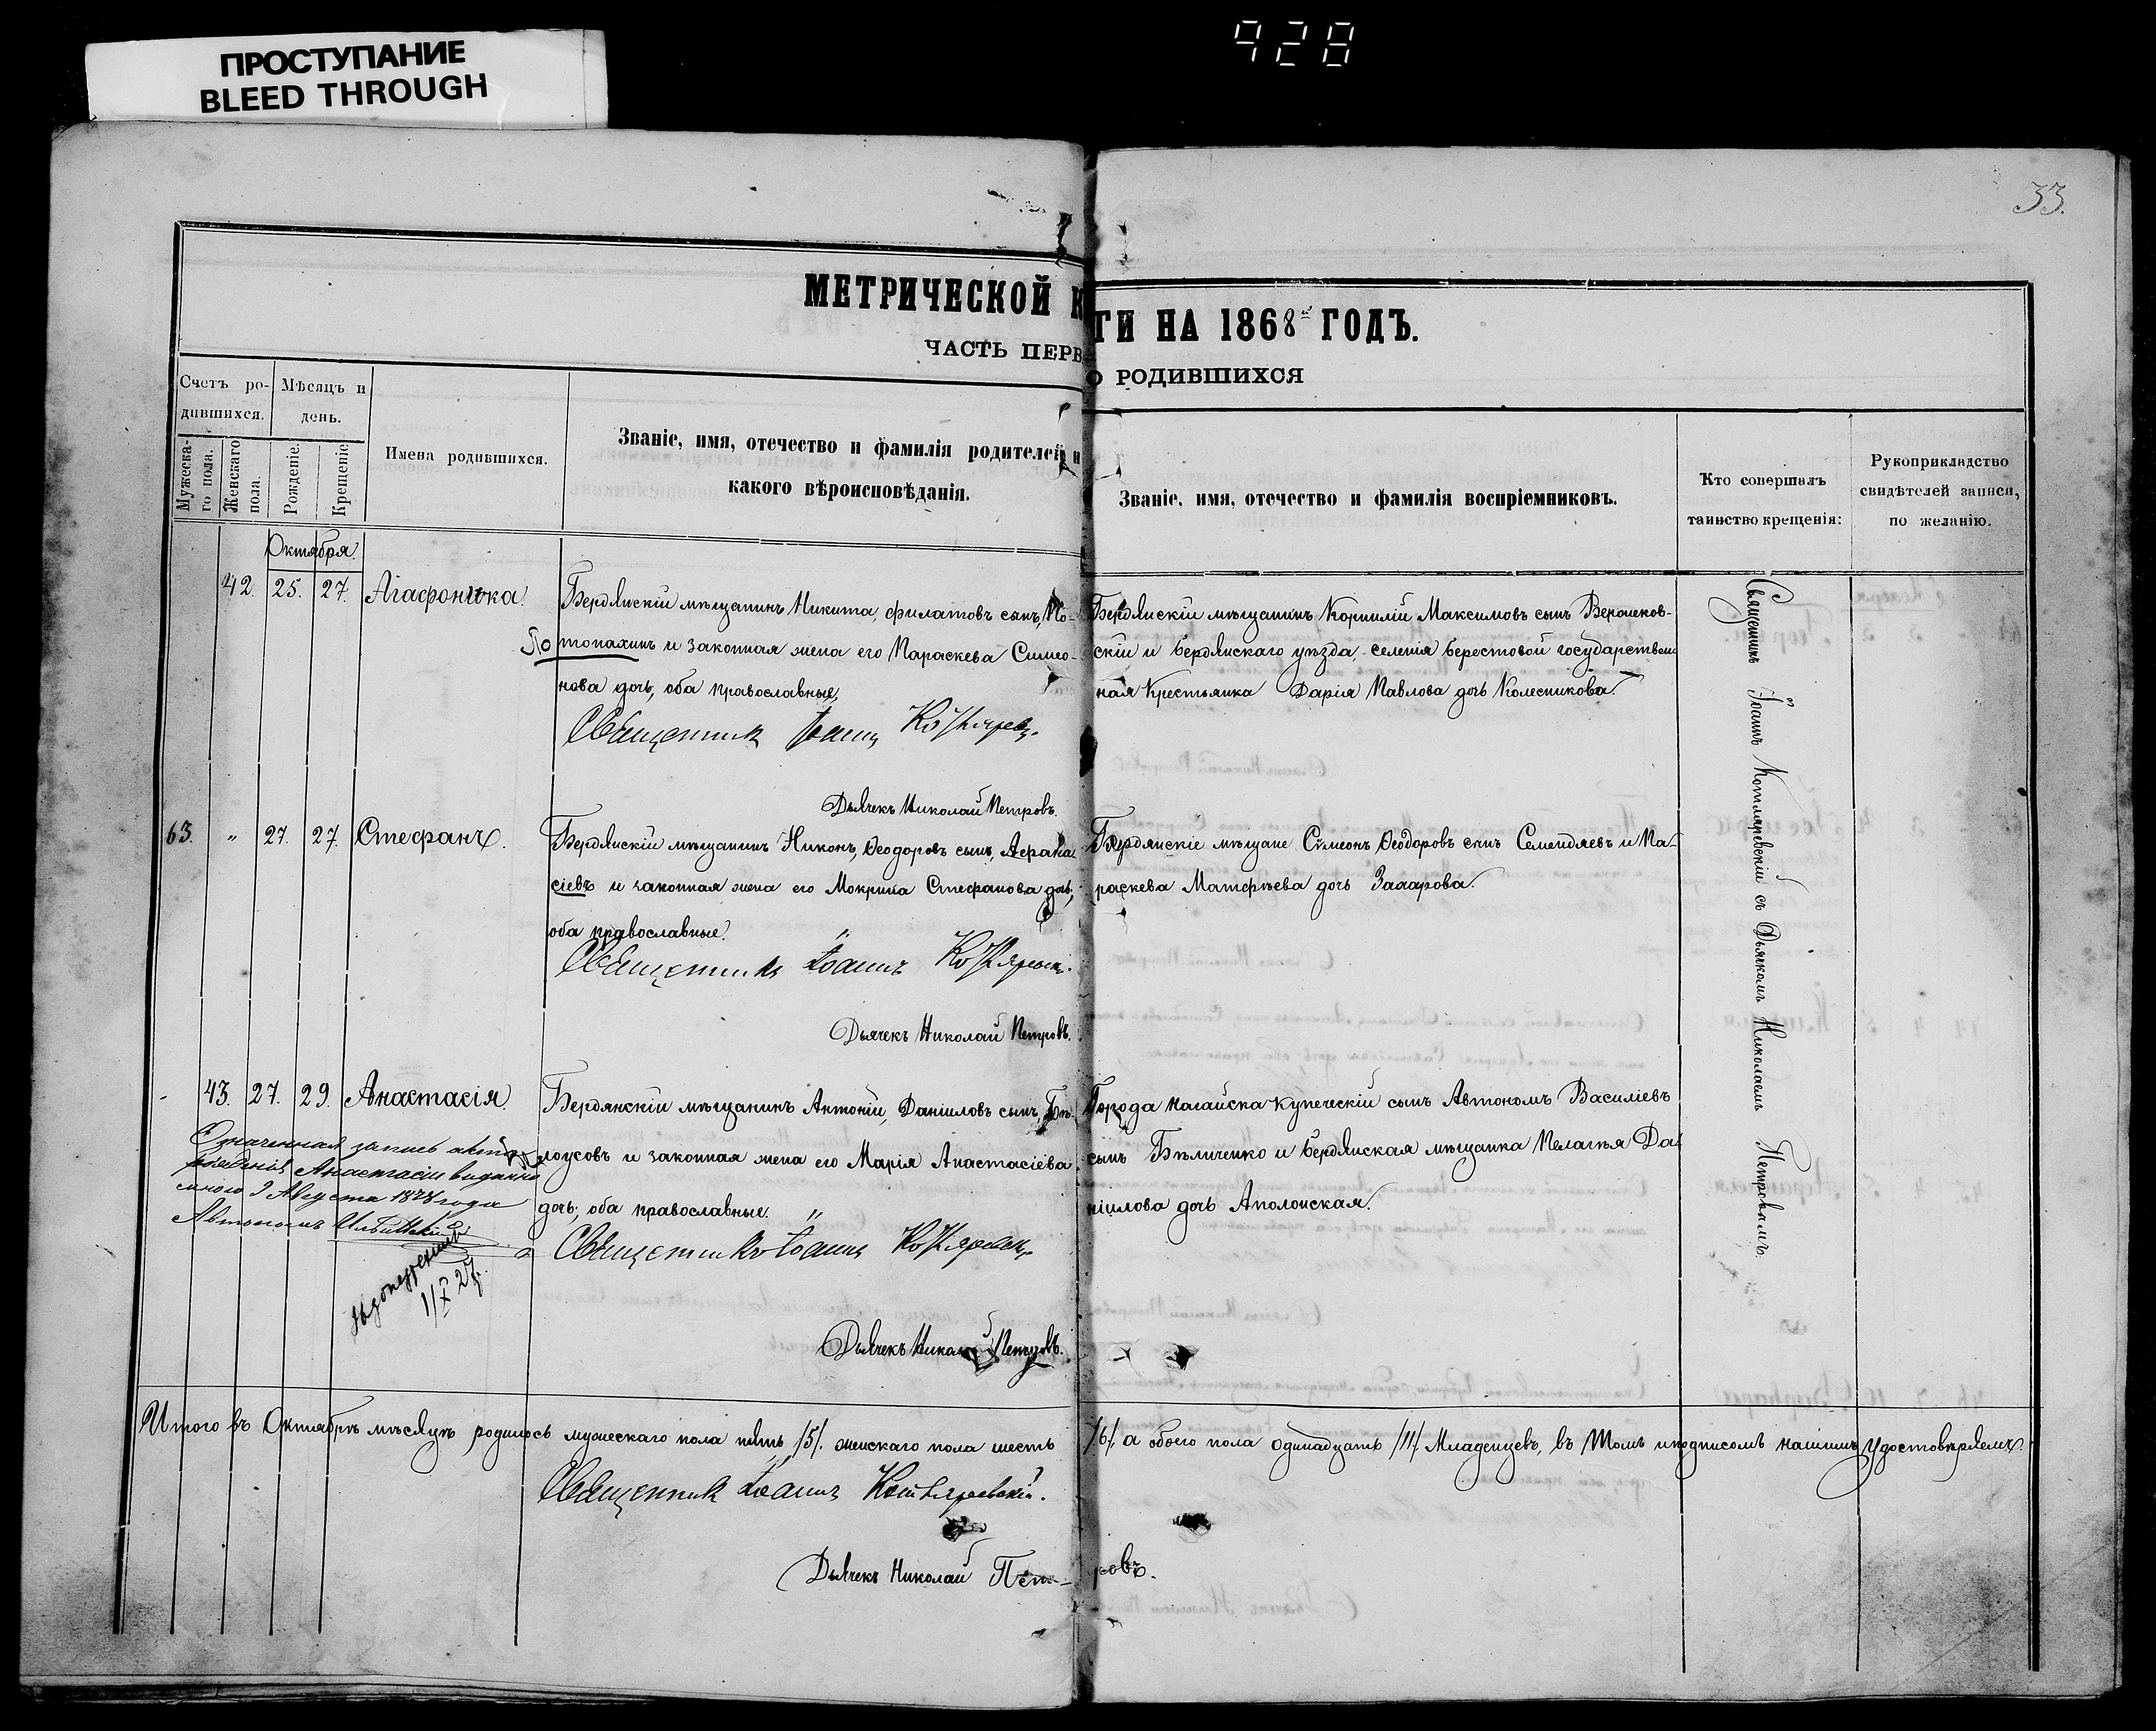 ПРОСТУПАНИЕ
BLEED THROUGH
928
33.
МЕТРИЧЕСКОЙ К
ГИ НА 1868й ГОДЪ.
ЧАСТЬ ПЕРВ
О РОДИВШИХСЯ
Счетъ ро-
дившихся.
Мужеска-
го пола.
Женскаго
пола.
Мѣсяцъ и
день.
Рожденіе.
Крещеніе.
Имена родившихся.
Званіе, имя, отечество и фамилія родителей и
какого вѣроисповѣданія.
Званіе, имя, отечество и фамилія воспріемниковъ.
Кто совершалъ
таинство крещенія:
Рукоприкладство
свидѣтелей записи,
по желанію.
Октября.
42. 25. 27. Агафоника.
Бердянскій мѣщанинъ Никита, филатовъ сынъ, По-
По топахинъ и законная жена его Параскева Симео-
нова дочь, оба православные,
Священник Іоаннъ
Дьячекъ Николай Петровъ.
Бердянскій мѣщанинъ Корнилій Максимовъ сынъ
скій и бердянскаго уѣзда, селенія берестовой государствен
ная Крестьянка Дарія Павлова дочь Колесникова.
63. " 27. 27. Стефанъ.
Бердянскій мѣщанинъ Никонъ, Ѳеодоровъ сынъ, Афана
сіевъ и законная жена его Мокрина Стефанова дочь,
оба православные.
Священникъ Іоаннъ
Дьячекъ Николай Петровъ.
Бердянскіе мѣщане Сѵмеонъ Ѳеодоровъ сынъ Семендяевъ и Па-
раскева Матфѣева дочь
- 43. 27. 29. Анастасія.
Бердянскій мѣщанинъ Антоній, Даніиловъ сынъ, Бѣ-
лоусовъ и законная жена его Марія Анастасіева
дочь, оба православные.
Священникъ Іоаннъ
Дьячекъ Николай Петровъ.
Города Ногайска купеческій сынъ Автономъ Василіевъ
сынъ Бѣличенко и бердянская мѣщанка Пелагѣя Да
ніилова дочь Аполонская.
Означенная запись
Анастасіи
9 Августа года
1/X 27.
Священникъ Іоаннъ Котляревскій съ Дьячкомъ Николаемъ Петровымъ.
Итого въ Октябрѣ мѣсяцѣ родилось мужескаго пола пять /5/. женскаго пола шесть
/6/. а обоего пола одинадцать /11/. Младенцевъ, въ томъ и подписомъ нашимъ удостовѣряемъ.
Священник Іоаннъ Котляревскій.
Дьячекъ Николай Пет-
ровъ.